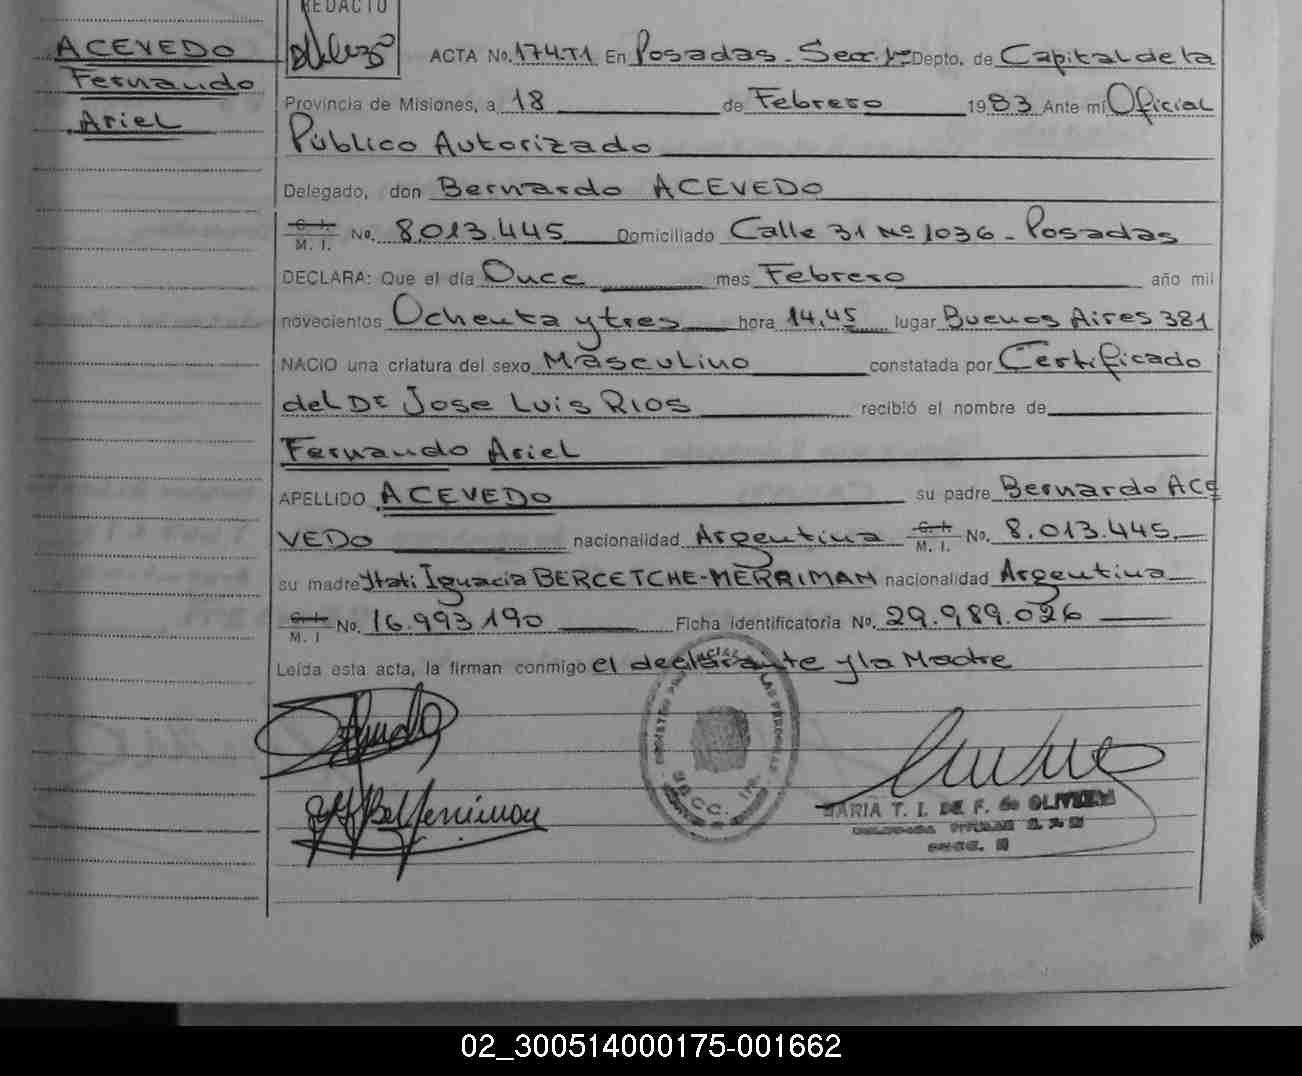 REDACTO
ACEVEDO
Fernando
Ariel
ACTA No. 174.T1 En Posadas - Secc. 1ra Depto. de Capital de la
Provincia de Misiones, a 18 de Febrero 1983 Ante mí Oficial
Público Autorizado
Delegado, don Bernardo ACEVEDO
C. I. M. I. No. 8.013.445 Domiciliado Calle 31 Nº 1036 - Posadas
DECLARA: Que el día Once mes Febrero año mil
novecientos Ochenta y tres hora 14,45 lugar Buenos Aires 381
NACIO una criatura del sexo Masculino constatada por Certificado
del Dr. Jose Luis RIOS recibió el nombre de
Fernando Ariel
APELLIDO ACEVEDO su padre Bernardo ACE
VEDO nacionalidad Argentina C. I. M. I. No. 8.013.445
su madre Itati Ignacia BERCETCHE-MERRIMAN nacionalidad Argentina
C. I. M. I No. 16.993.190 Ficha identificatoria No. 29.989.026
Leída esta acta, la firman conmigo el declarante y la Madre
MARIA T. I. DE F. de OLIVEIRA
02_300514000175-001662